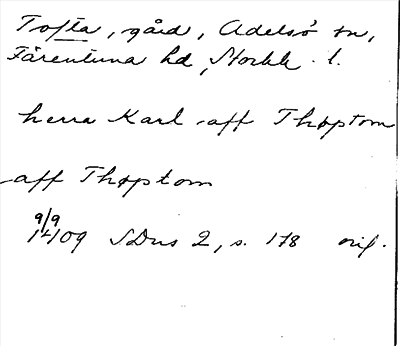 Tofta, gård, Adelsö sn,
Färentuna hd, Stockh. l.
herra Karl aff Thoptom
aff Thoptom
9/9
1409 SDns 2, s. 178 orig.